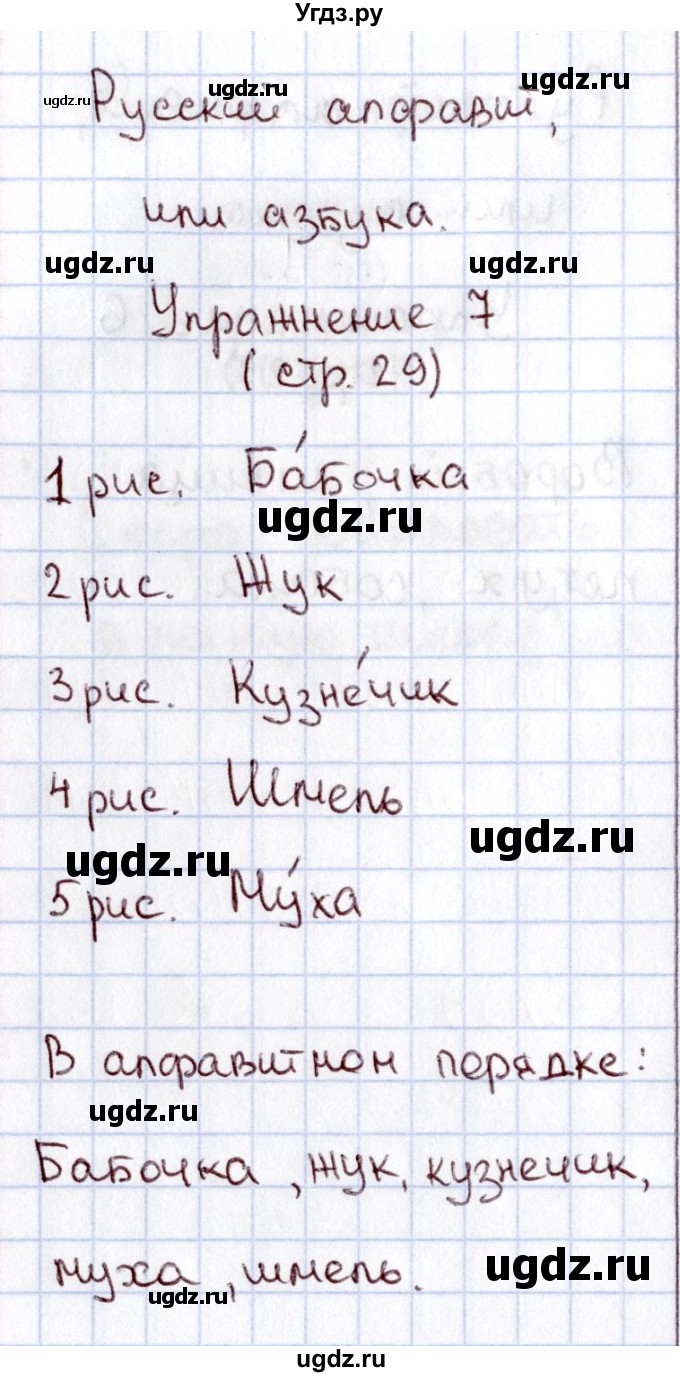 Угдз.ру
ugdz.ru Русский алфавит, ugdz.ru ugdz.ru
или азбука.
ugdz.ru ugdz.ru
Упражнение 7
(стр. 29)
1 рис. Ба́бочка
ugdz.ru
2 рис. Жук
3 рис. Кузне́чик
4 рис. Шмель
ugdz.ru
ugdz.ru
5 рис. Му́ха
В алфавитном порядке:
ugdz.ru
Бабочка, жук, кузнечик,
муха, шмель.
ugdz.ru ugdz.ru
ugdz.ru